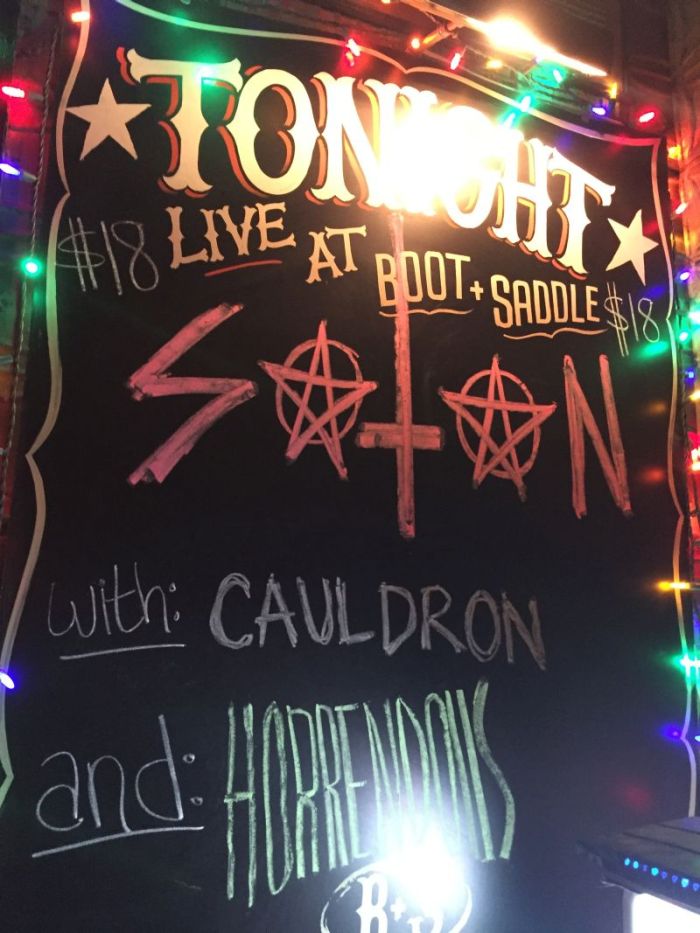 TONIGHT
$18 LIVE AT BOOT + SADDLE $18
SATAN
with: CAULDRON
and: HORRENDOUS
B+S